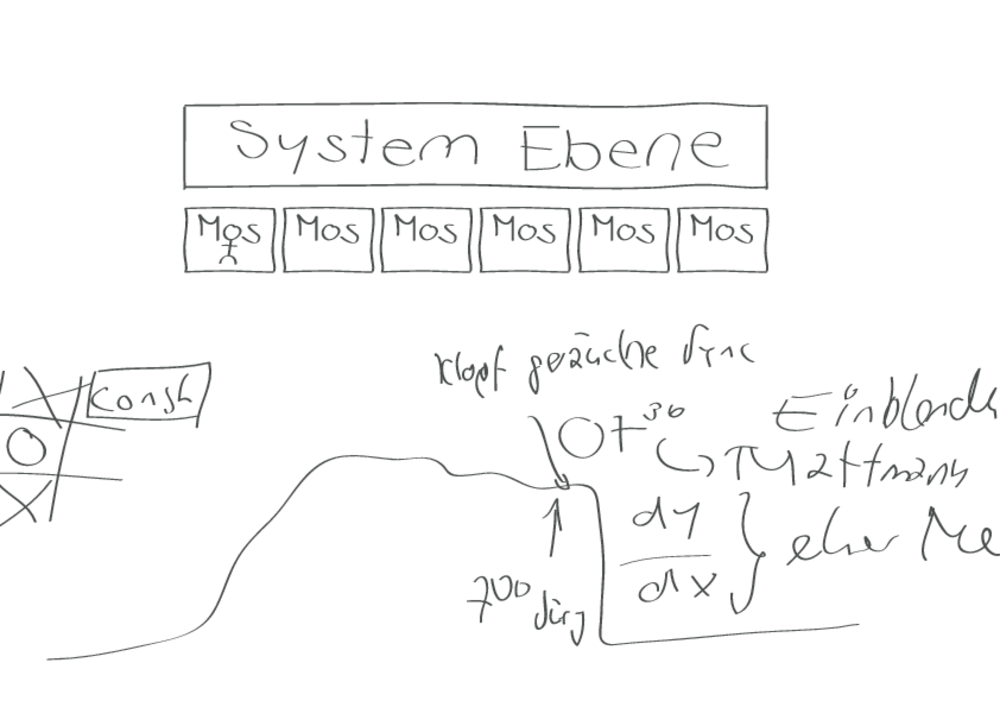 System Ebene
Mos Mos Mos Mos Mos Mos
Klopf geräuche Sync
Konsh
O
X
07 30
Einblende
Mattmann
dy
dx
eher Me
700
Jürg